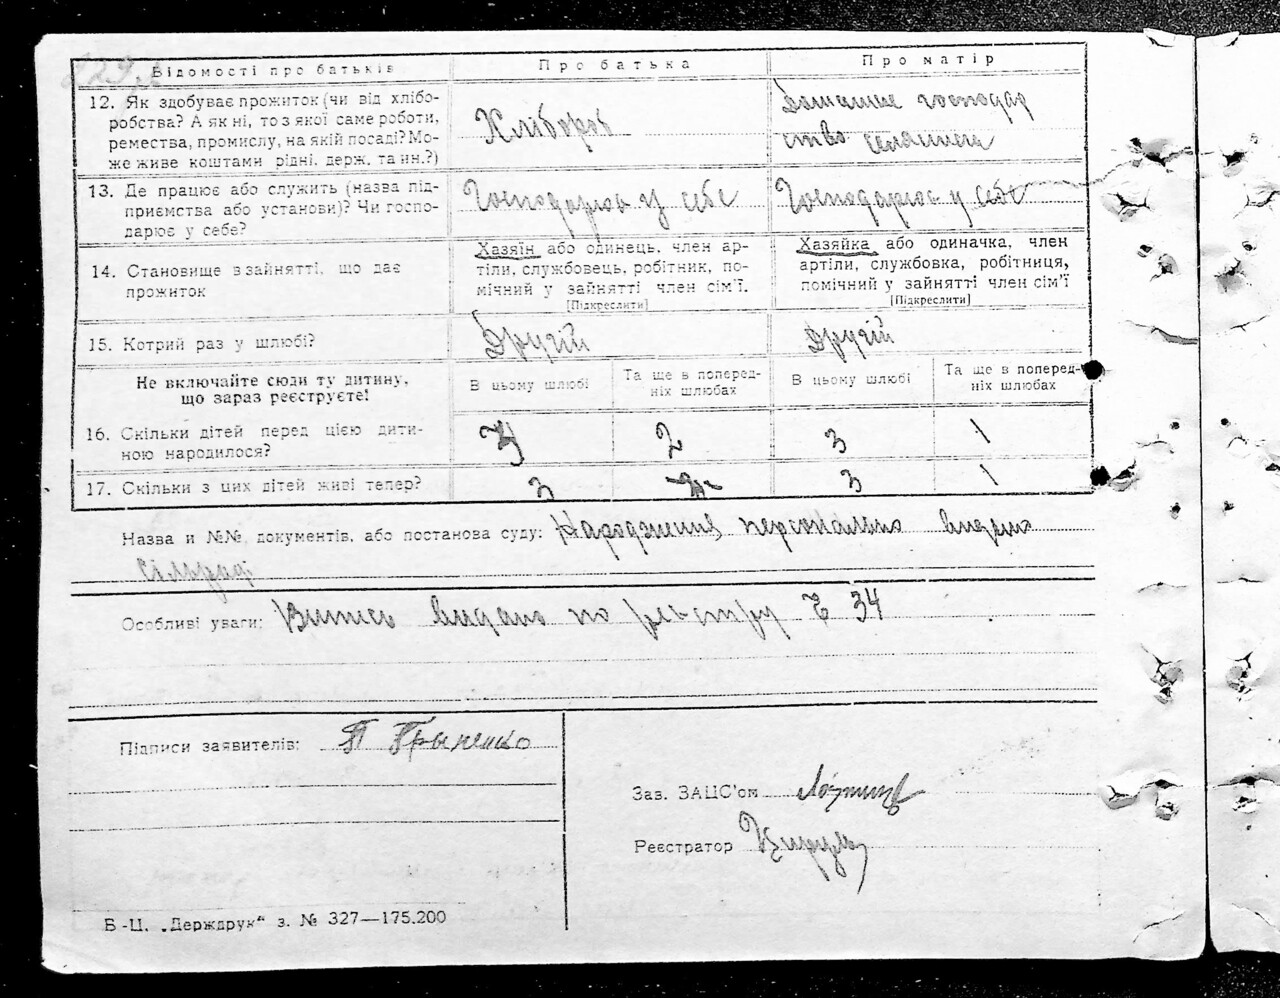 Відомості про батьків
Про батька
Про матір
12. Як здобуває прожиток (чи від хлібо-
робства? А як ні, то з якої саме роботи,
ремества, промислу, на якій посаді? Мо-
же живе коштами рідні, держ. та ин.?)
Хлібороб
Домашнє господар
ство
13. Де працює або служить (назва під-
приємства або установи)? Чи госпо-
дарює у себе?
Господарює у себе
Господарює у себе
14. Становище в зайнятті, що дає
прожиток
Хазяїн або одинець, член ар-
тіли, службовець, робітник, по-
мічний у зайнятті член сім'ї.
[Підкреслити]
Хазяйка або одиначка, член
артіли, службовка, робітниця,
помічний у зайнятті член сім'ї
[Підкреслити]
15. Котрий раз у шлюбі?
Другій
Другій
Не включайте сюди ту дитину,
що зараз реєструєте!
В цьому шлюбі
Та ще в поперед-
ніх шлюбах
В цьому шлюбі
Та ще в поперед-
ніх шлюбах
16. Скільки дітей перед цією дити-
ною народилося?
2
3
1
17. Скільки з цих дітей живі тепер?
3
3
1
Назва и №№ документів, або постанова суду: Народження персонально видано
сільрад
Особливі уваги: Витяг видано по реєстру Ч 34
Підписи заявителів: П Грыненко
Зав. ЗАЦС'ом
Реєстратор
Б-Ц. „Держдрук“ з. № 327—175.200